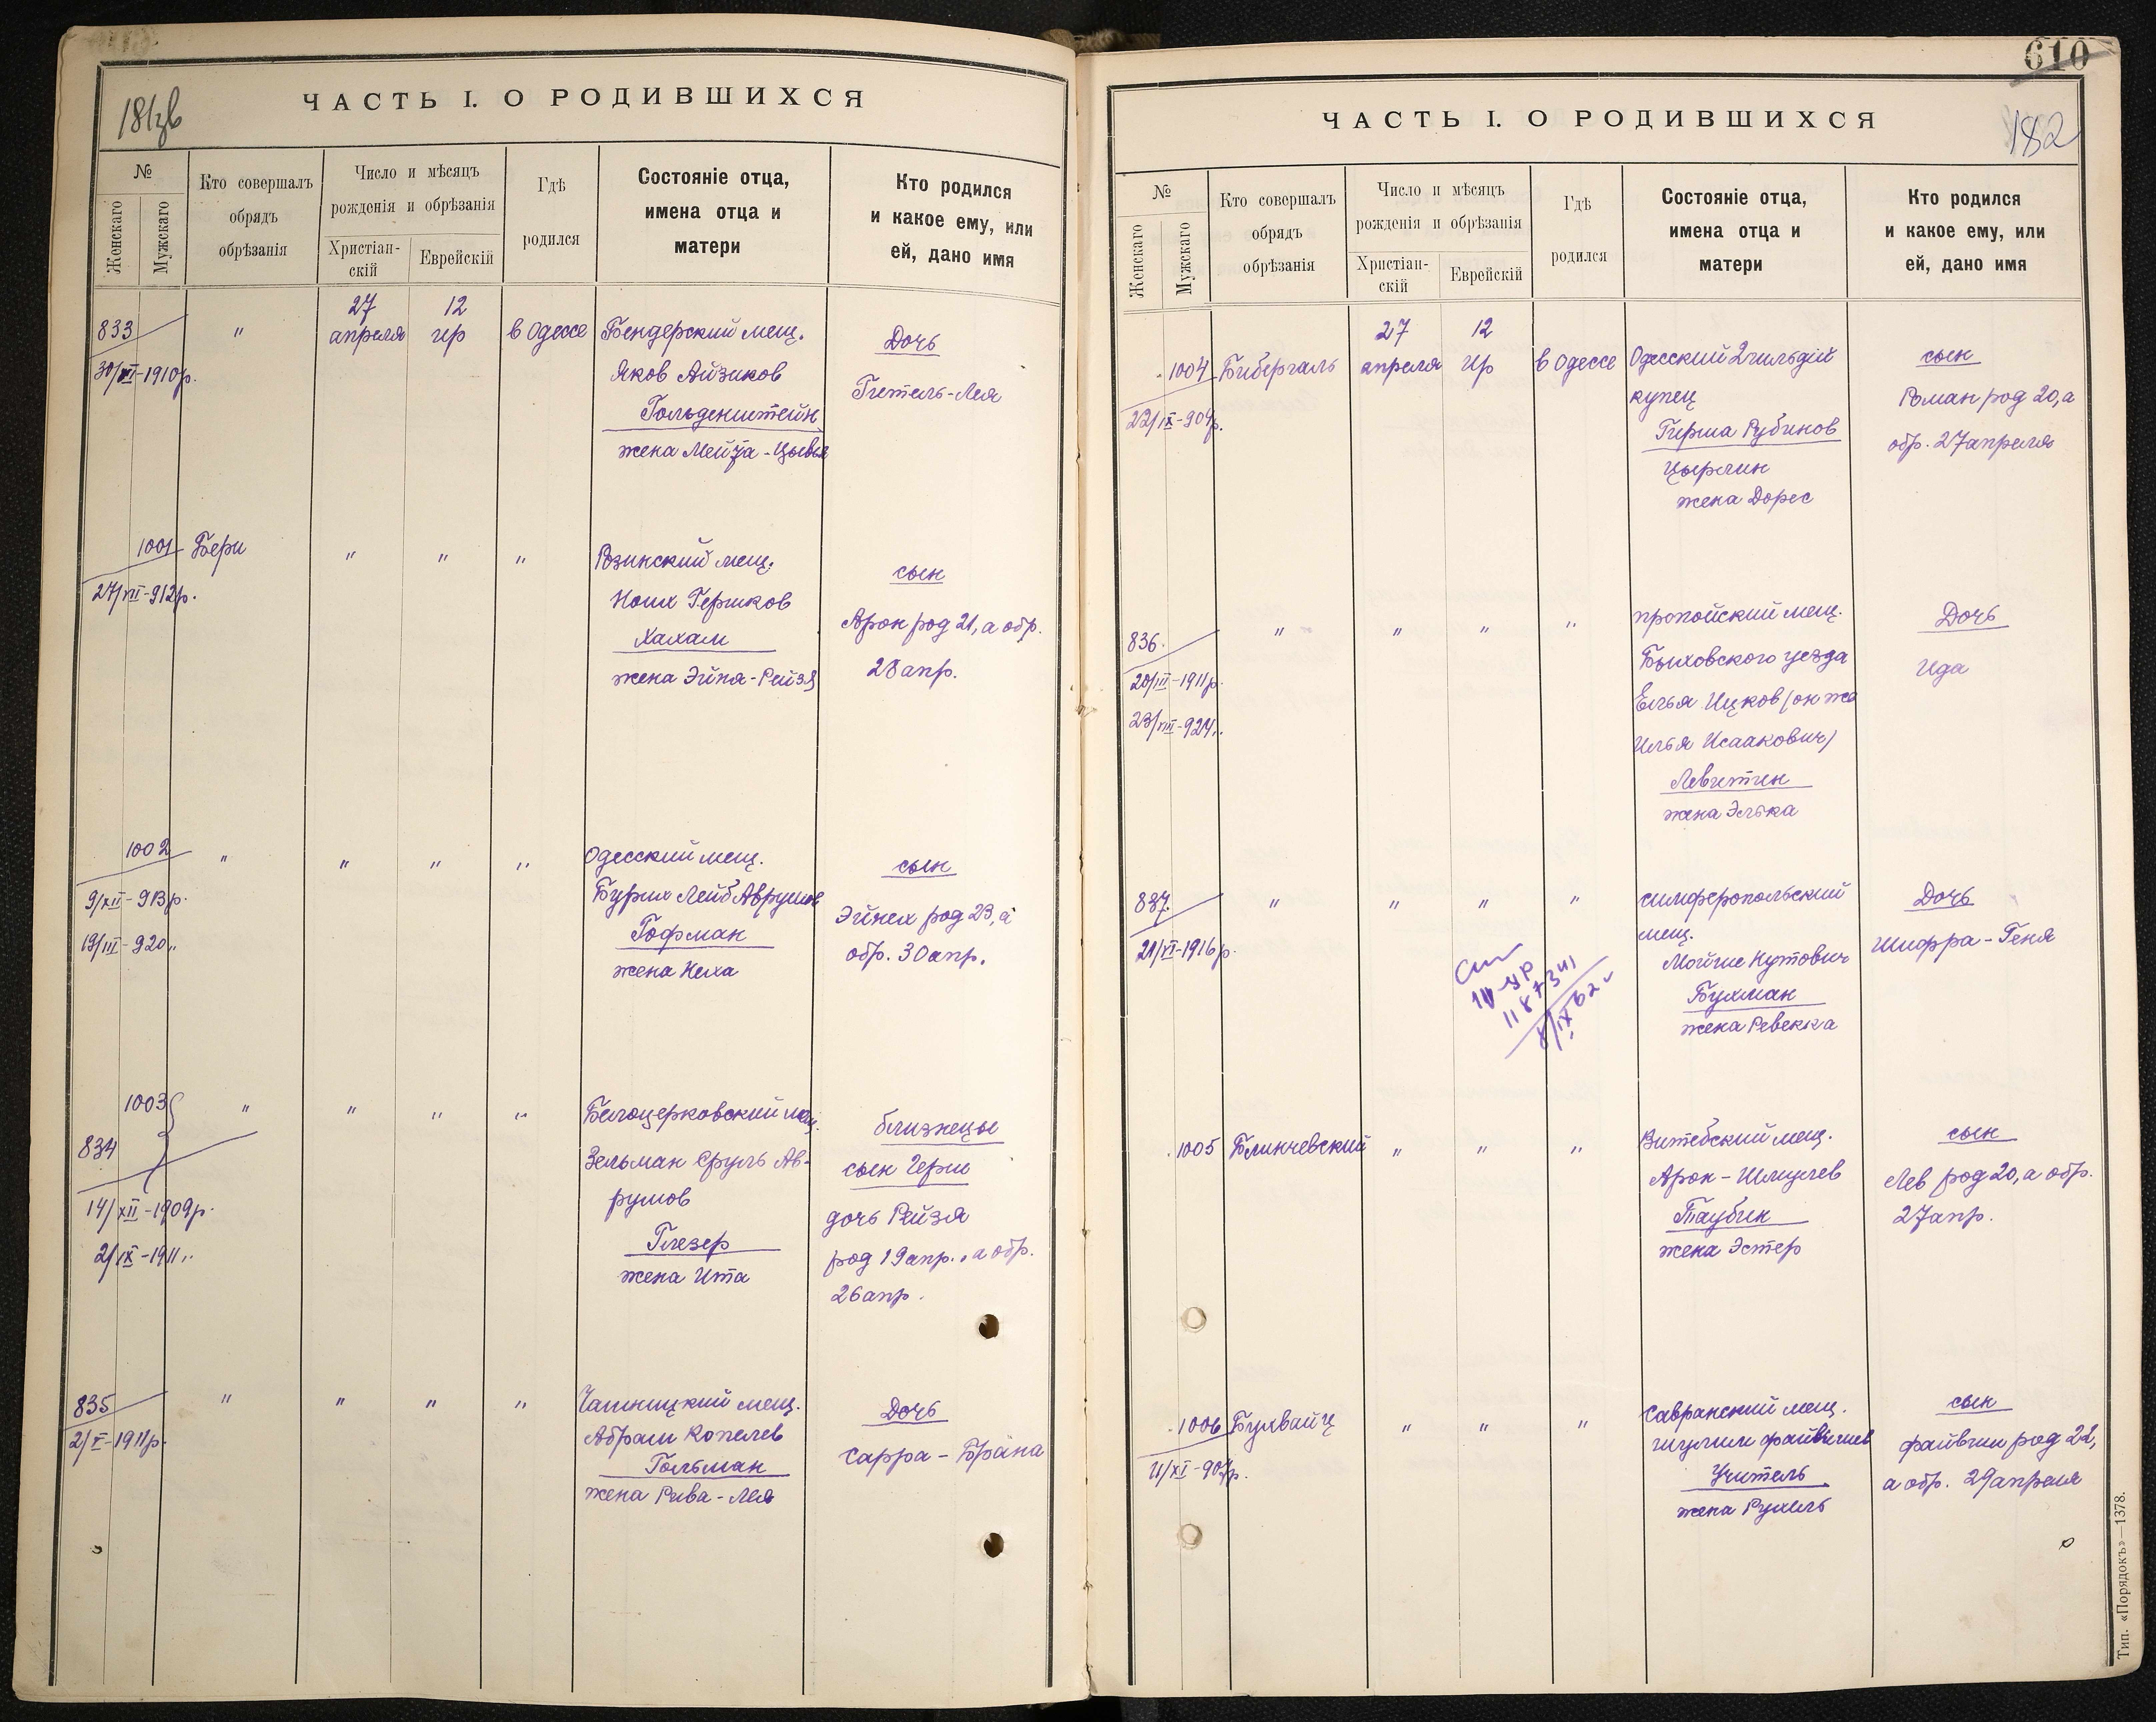 ЧАСТЬ I. О РОДИВШИХСЯ
№
Женскаго
Мужскаго
Кто совершалъ
обрядъ
обрѣзанія
Число и мѣсяцъ
рожденія и обрѣзанія
Христіан-
скій
Еврейскій
Гдѣ
родился
Состояніе отца,
имена отца и
матери
Кто родился
и какое ему, или
ей, дано имя
833
30/VI-1910р.
"
27
апреля
12
Ир
в Одессе
Бендерский мещ.
Яков Айзиков
Гольденштейн
жена Мейза-Цывья
Дочь
Гитель-Лея
1001
27/VII-912р.
Бери
"
"
"
Розинский мещ.
Гершков
Хахам
жена Эйня-Рейзя
сын
Арон род 21, а обр.
28 апр.
1002
9/XII-913р.
19/III-920"
"
"
"
"
Одесский мещ.
Бурих Лейб Аврумов
Гофман
жена Неха
сын
Эйнех род 23, а
обр. 30 апр.
1003
834
14/XII-1909р.
2/IX-1911"
"
"
"
"
Белоцерковский мещ.
Зельман Сруль Ав-
румов
Глезер
жена Ита
близнецы
сын Герш
дочь Рейзя
род 19 апр., а обр.
26 апр.
835
2/V-1911р.
"
"
"
"
Чашницкий мещ.
Абрам Копелев
Гольман
жена Рива-Лея
Дочь
Сарра-Брана
610
182
ЧАСТЬ I. О РОДИВШИХСЯ
№
Женскаго
Мужскаго
Кто совершалъ
обрядъ
обрѣзанія
Число и мѣсяцъ
рожденія и обрѣзанія
Христіан-
скій
Еврейскій
Гдѣ
родился
Состояніе отца,
имена отца и
матери
Кто родился
и какое ему, или
ей, дано имя
1004
22/IX-904р.
Бибергаль
27
апреля
12
Ир
в Одессе
Одесский 2 гильдий
купец
Гирша Рубинов
Цырлин
жена Дорес
сын
Роман род 20, а
обр. 27 апреля
836
20/III-1911р.
23/VIII-924"
"
"
"
"
пропойский мещ.
Быховского уезда
Елья Ицков (он же
Илья Исаакович)
Левитин
жена Элька
Дочь
Ида
837
21/VI-1916р.
"
"
"
"
симферопольский
мещ.
Мойше Нутович
Бухман
жена Ревекка
Дочь
Шифра-Геня
1005
Блинчевский
"
"
"
Витебский мещ.
Арон-Шмулев
Таубин
жена Эстер
сын
Лев род 20, а обр.
27 апр.
1006
Бухвайц
"
"
"
Савранский мещ.
Шулим Файвишев
Учитель
жена Рухель
сын
Файвиш род 22,
а обр. 29 апреля
Тип. «Порядокъ»—1378.